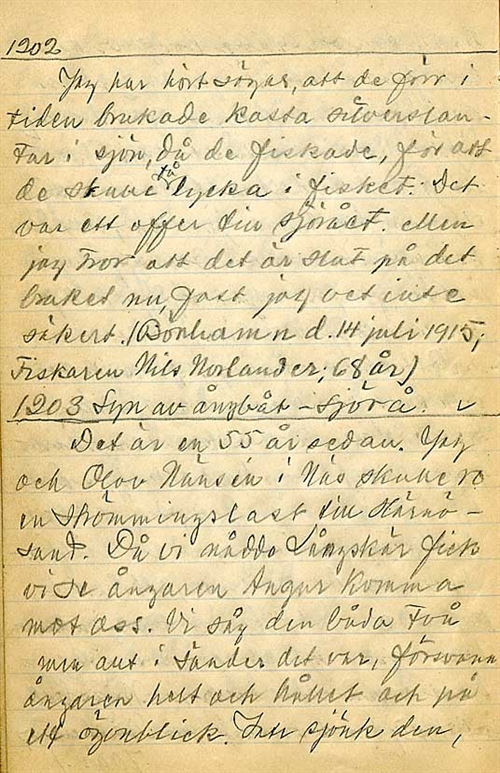 1202
Jag har hört sägas, att de förr i
tiden brukade kasta silverslan-
tar i sjön, då de fiskade, för att
de skulle få lycka i fisket. Det
var ett offer till sjörået. Men
jag tror att det är slut på det
bruket nu, fast jag vet inte
säkert. (Bönhamn d. 14 juli 1915;
Fiskaren Nils Norlander; 68 år)
1203 Syn av ångbåt - Sjörå. v
Det är en 55 år sedan. Jag
och Olov Hansén i Näs skulle ro
en strömmingslast till Härnö-
sand. Då vi nådde Långskär fick
vi se ångaren Angur komma
mot oss. Vi såg den båda två
men allt i sänder det var, försvann
ångaren helt och hållet och på
ett ögonblick. Inte sjönk den,